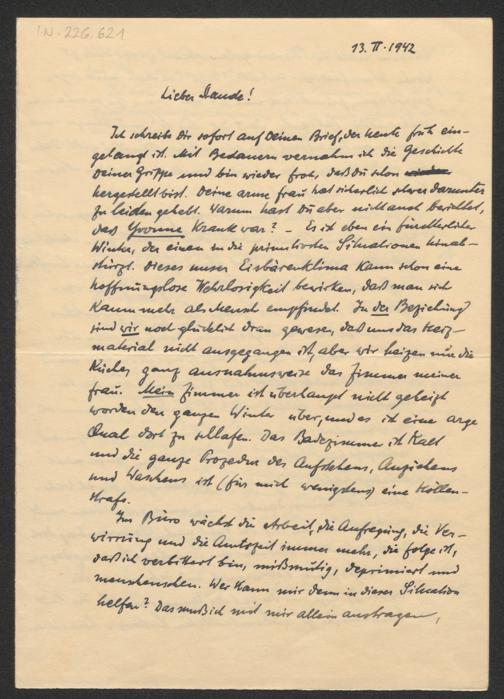 I.N. 226.621
13. II. 1942
Lieber Daude!
Ich schreibe Dir sofort auf Deinen Brief, der heute früh ein-
gelangt ist. Mit Bedauern vernahm ich die Geschichte
Deiner Grippe und bin wieder froh, daß Du schon
hergestellt bist. Deine arme Frau hat sicherlich schwer darunter
zu leiden gehabt. Warum hast Du aber nicht auch berichtet,
daß Yvonne krank war? – Es ist eben ein fürchterlicher
Winter, der einen in die primitivsten Situationen hinab-
stürzt. Dieses unser Eisbärenklima kann schon eine
hoffnungslose Wehrlosigkeit bewirken, daß man sich
kaum mehr als Mensch empfindet. In der Beziehung
sind wir noch glücklich dran gewesen, daß uns das Heiz-
material nicht ausgegangen ist, aber wir heizen nur die
Küche, ganz ausnahmsweise das Zimmer meiner
Frau. Mein Zimmer ist überhaupt nicht geheizt
worden den ganzen Winter über, und es ist eine arge
Qual dort zu schlafen. Das Badezimmer ist kalt
und die ganze Prozedur des Aufstehens, Anziehens
und Waschens ist (für mich wenigstens) eine Höllen-
strafe.
Im Büro wächst die Arbeit, die Aufregung, die Ver-
wirrung und die Amtszeit immer mehr, die Folge ist,
daß ich verbittert bin, mißmutig, deprimiert und
menschenscheu. Wer kann mir denn in dieser Situation
helfen? Das muß ich mit mir allein austragen,